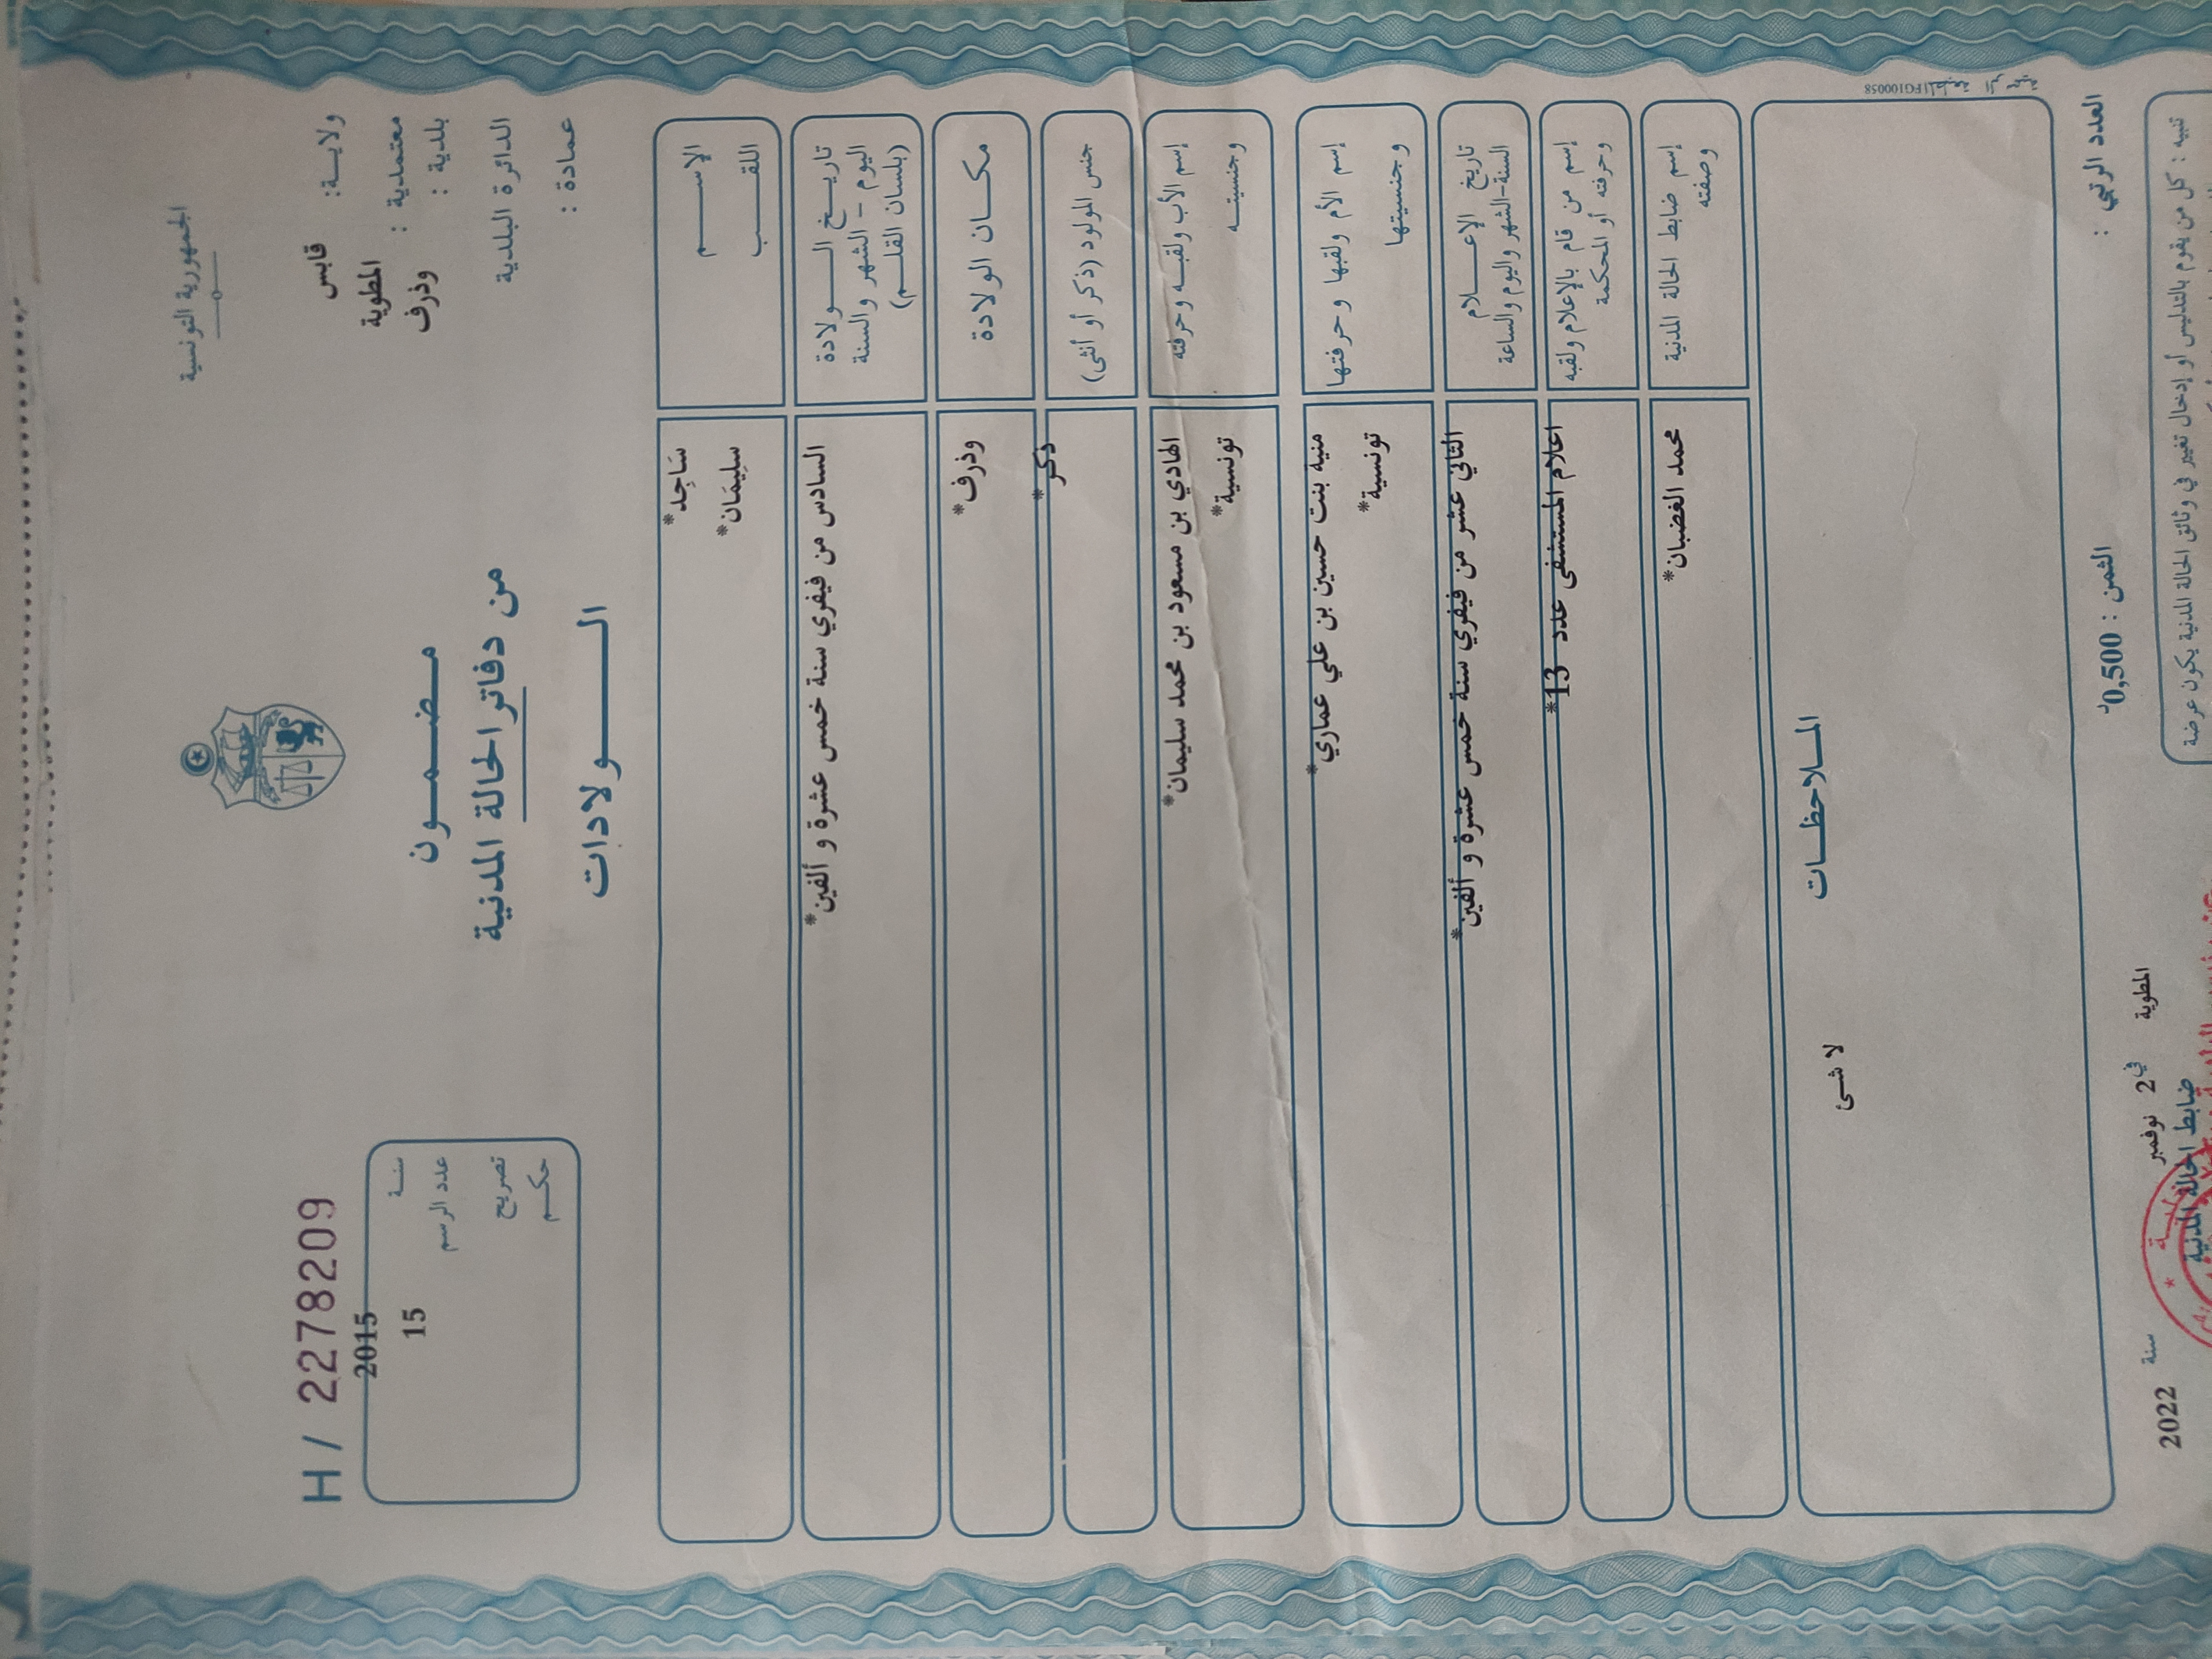 الجمهورية التونسية
ولايــة: قابس
معتمدية : المطوية
بلدية : وذرف
الدائرة البلدية
عمادة :
H / 2278209
سنــة 2015
عدد الرسم 15
تصريح
حكــم
مـضـمــون
من دفاتر الحالة المدنية
الــولادات
الإســـم
*سَاجِد
اللقــب
*سِليمَان
تاريــخ الــولادة
اليوم - الشهر والسنة
(بلسان القلــم)
*السادس من فيفري سنة خمس عشرة و ألفين
مكــان الولادة
*وذرف
جنس المولود (ذكر أو أنثى)
*ذكر
إسم الأب ولقبــه وحرفته
*الهادي بن مسعود بن محمد سليمان
وجنسيتــه
*تونسية
إسم الأم ولقبها وحرفتها
*منية بنت حسين بن علي عماري
وجنسيتها
*تونسية
تاريخ الإعــلام
السنة-الشهر واليوم والساعة
*الثاني عشر من فيفري سنة خمس عشرة و ألفين
إسم من قام بالإعلام ولقبه
وحرفته أو المحكمة
*اعلام المستشفى عدد 13
إسم ضابط الحالة المدنية
وصفته
*محمد الغضبان
الملاحظــات
لا شئ
FG100058
العدد الرتبي :
الثمن : 0,500د
المطوية في 2 نوفمبر سنة 2022
ضابط الحالة المدنية
تنبيه : كل من يقوم بالتدليس أو إدخال تغيير في وثائق الحالة المدنية يكون عرضة